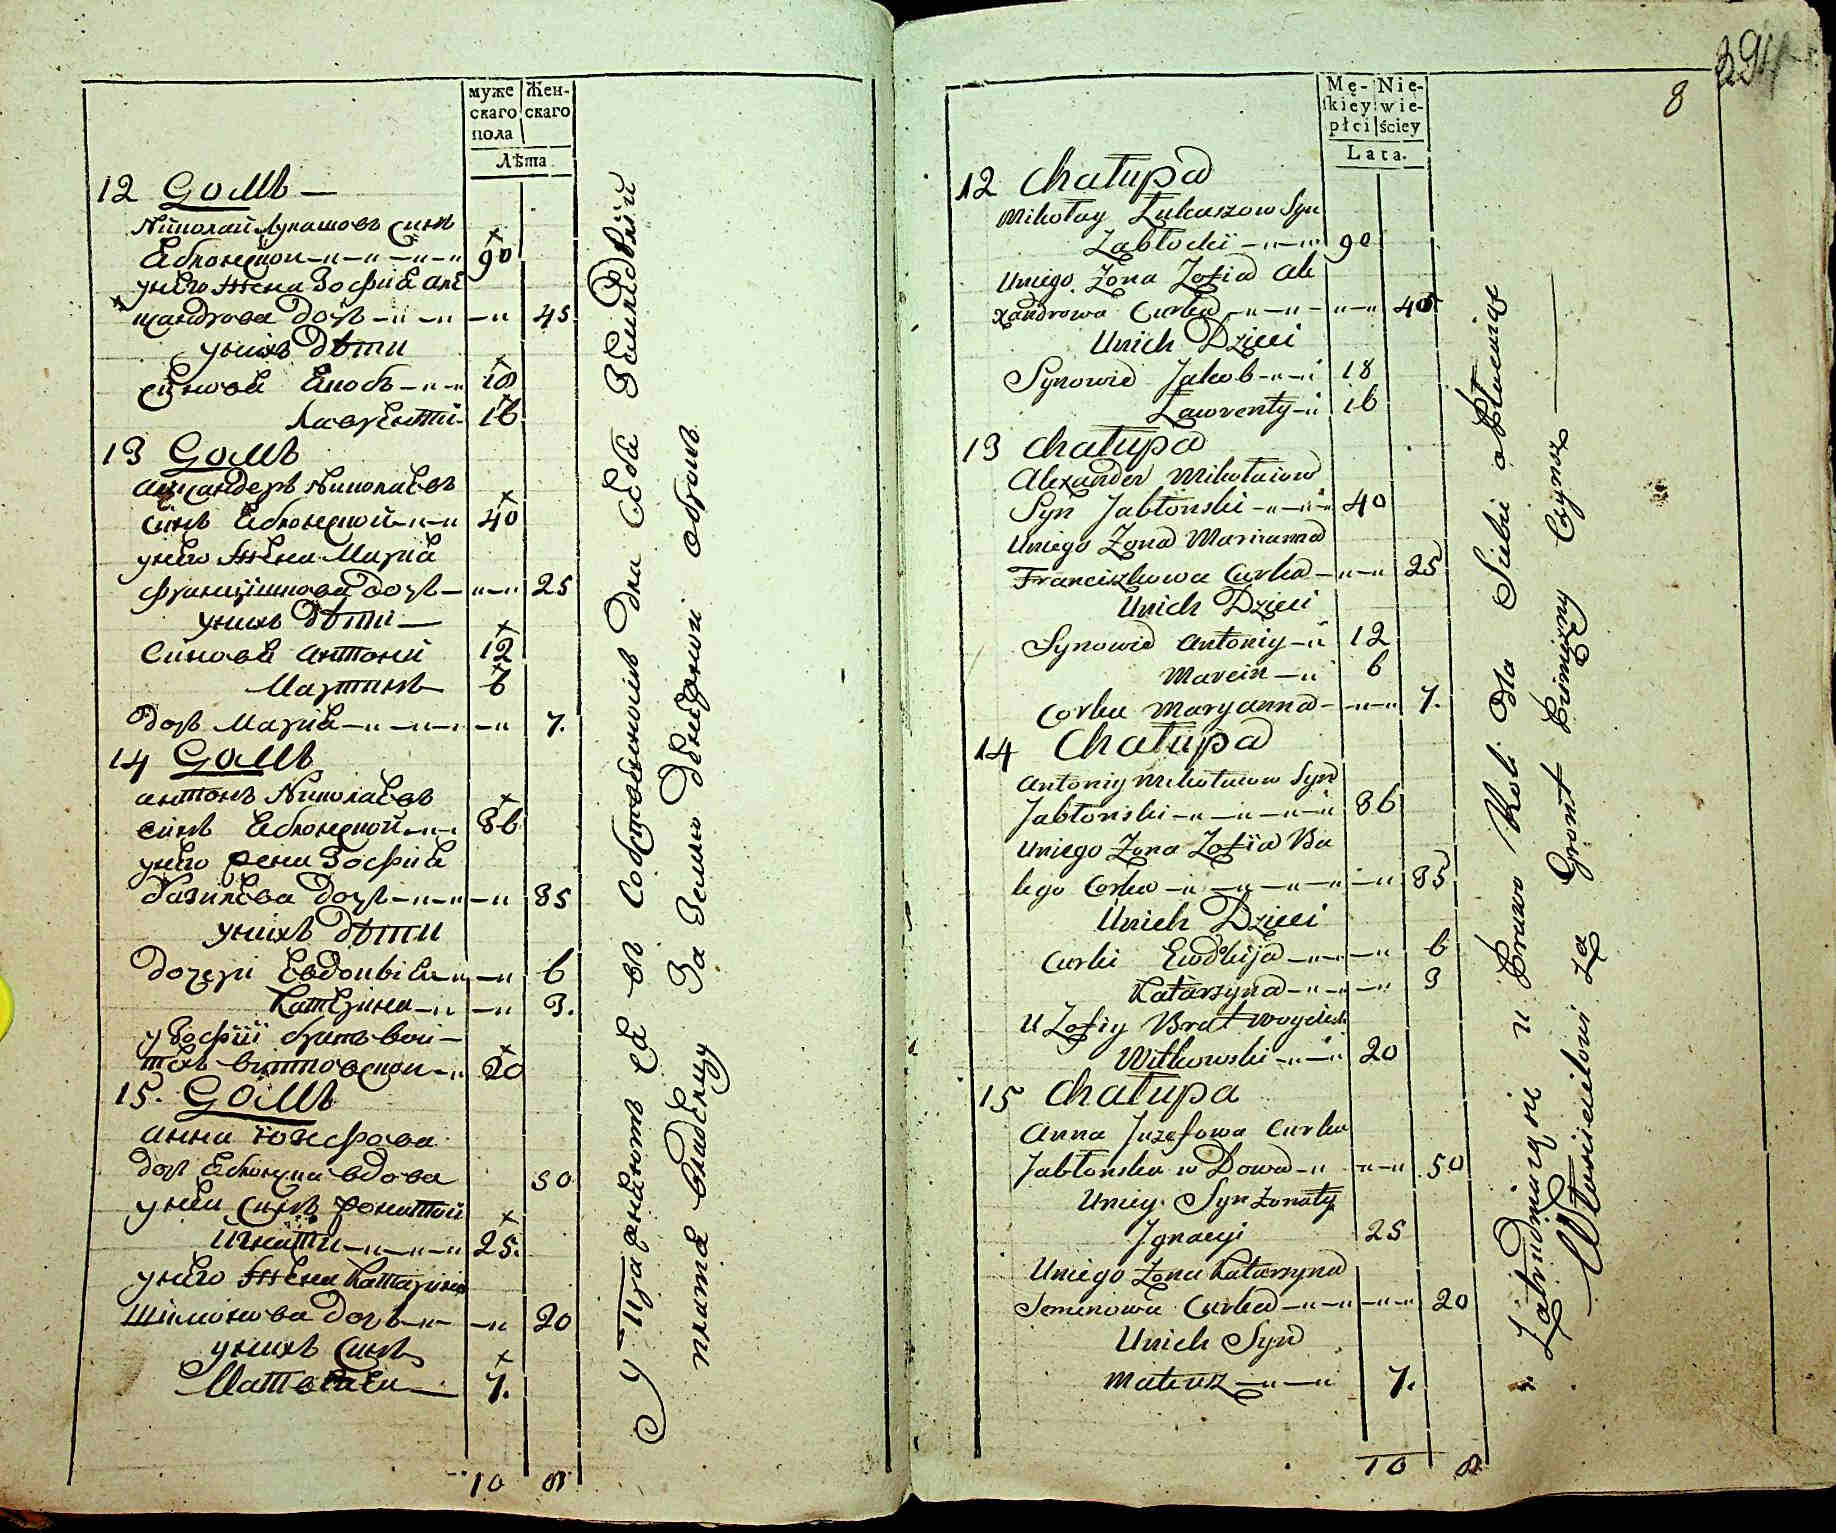 муже Жен-
скаго скаго
пола
Лѣта.
12 Домъ —
Николай Лукашовъ синъ
Яблонскои 90
унего жена Зофия але
ѯандрова дочь 45
унихъ дѣти
синове Якобъ 18
Лаврентий 16
13 Домъ
Алеѯандеръ Николаевъ
синъ Яблонской 40
унего жена Мария
Францишкова дочь 25
унихъ дѣти —
Синове антоній 12
Мартинъ 6
дочь Мария 7.
14 Домъ
антонъ Николаевъ
синъ Яблонской 36
унего жена Зофия
базилева дочь 35
унихъ дѣти
дочери Евдокия 6
Катерина 3.
у Зофіи братъ вой-
техъ витковскои 20
15. Домъ
анна Юзефова
дочь Яблонска вдова 50
унеи синъ женатой
Игнатий 25.
унего жена Катарина
Шимонова дочь 20
унихъ Синъ
Матвеий 7.
10 8
Упражняются въ собственномъ для себя земледелии
платя владельцу за землю денежной оброкъ
394
8
Mę- Nie-
skiey wie-
płci ściey
Lata.
12 Chałupa
Mikołay Łukaszow Syn
Jabłocki 90
Uniego Żona Zofia Ale
xandrowa Curka 45
Unich Dzieci
Synowie Jakob 18
Ławrenty 16
13 Chałupa
Alexander Mikołaiow
Syn Jabłonski 40
Uniego Żona Marianna
Franciszkowa Curka 25
Unich Dzieci
Synowie Antoniy 12
Marcin 6
Corka Maryanna 7.
14 Chałupa
Antoniy Mikołaiow Syn
Jabłonski 36
Uniego Żona Zofia Ba
lego Corka 35
Unich Dzieci
Curki Ewdkija 6
Katarzyna 3
U Zofiy Brat Woyciech
Witkowski 20
15 Chałupa
Anna Juzefowa Curka
Jabłonska wDowa 50
Uniey Syn Żonaty
Jgnacyi 25
Uniego Żona Katarzyna
Semenowa Curka 20
Unich Syn
Mateusz 7.
10 8
Zatrudniaią się u Prawo Roli Dla Siebie opłacaiąc
Włascicielowi Za Gront Pieniężny Czynsz